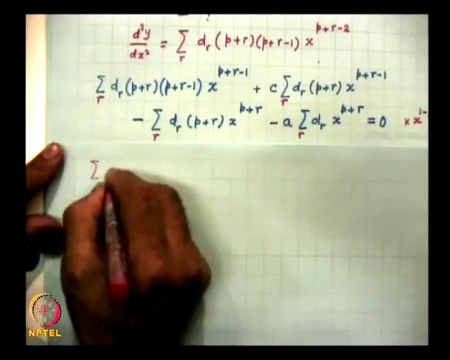 d²y/dx² = Σ_r d_r (p+r)(p+r-1) x^{p+r-2}
Σ_r d_r (p+r)(p+r-1) x^{p+r-1} + c Σ_r d_r (p+r) x^{p+r-1}
- Σ_r d_r (p+r) x^{p+r} - a Σ_r d_r x^{p+r} = 0 × x^{1-
Σ
NPTEL